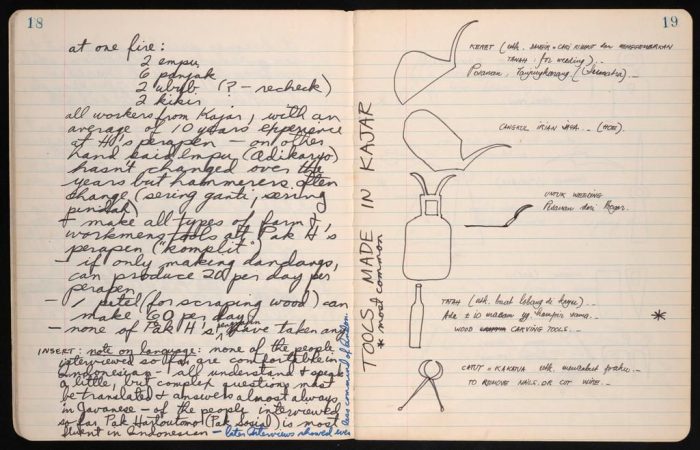 18
at one fire:
2 empu
6 panjak
2 ubub (? - recheck)
2 kikir
all workers from Kajar, with an
average of 10 years experience
at HU's perapen - on other
hand said Empu (Adikaryo)
hasn't changed over the
years but hammerers often
change (sering ganti, sering
pindah)
+ make all types of farm &
workmens tools at Pak H's
perapen ("komplit")
- if only making dandangs,
can produce 20 per day per
perapen
- 1 petel (for scraping wood) can
make 60 per day
- none of Pak H's have taken any
INSERT: note on language: none of the people
interviewed so far are comfortable in
Indonesian - all understand & speak
a little, but complex questions must
be translated & answers almost always
in Javanese - of the people interviewed
so far Pak Hartoutomo (Pak Sosial) is most
fluent in Indonesian - later interviews showed even
less command of
19
TOOLS MADE IN KAJAR
* most common
KERET (utk. DANGIR = CARI RUMPUT dan MENGGEMBURKAN
TANAH: for weeding)
Pesanan, Tanjungkarang (Sumatra).
CANGKUL IRIAN JAYA.. (HOE).
UNTUK WEEDING
Pesanan dari Bogor.
TATAH (utk. buat lobang di kayu)..
Ada ± 10 macam yg. hampir sama..
WOOD CARVING TOOLS..
*
CATUT = KAKATUA utk. mencabut paku..
TO REMOVE NAILS OR CUT WIRE..